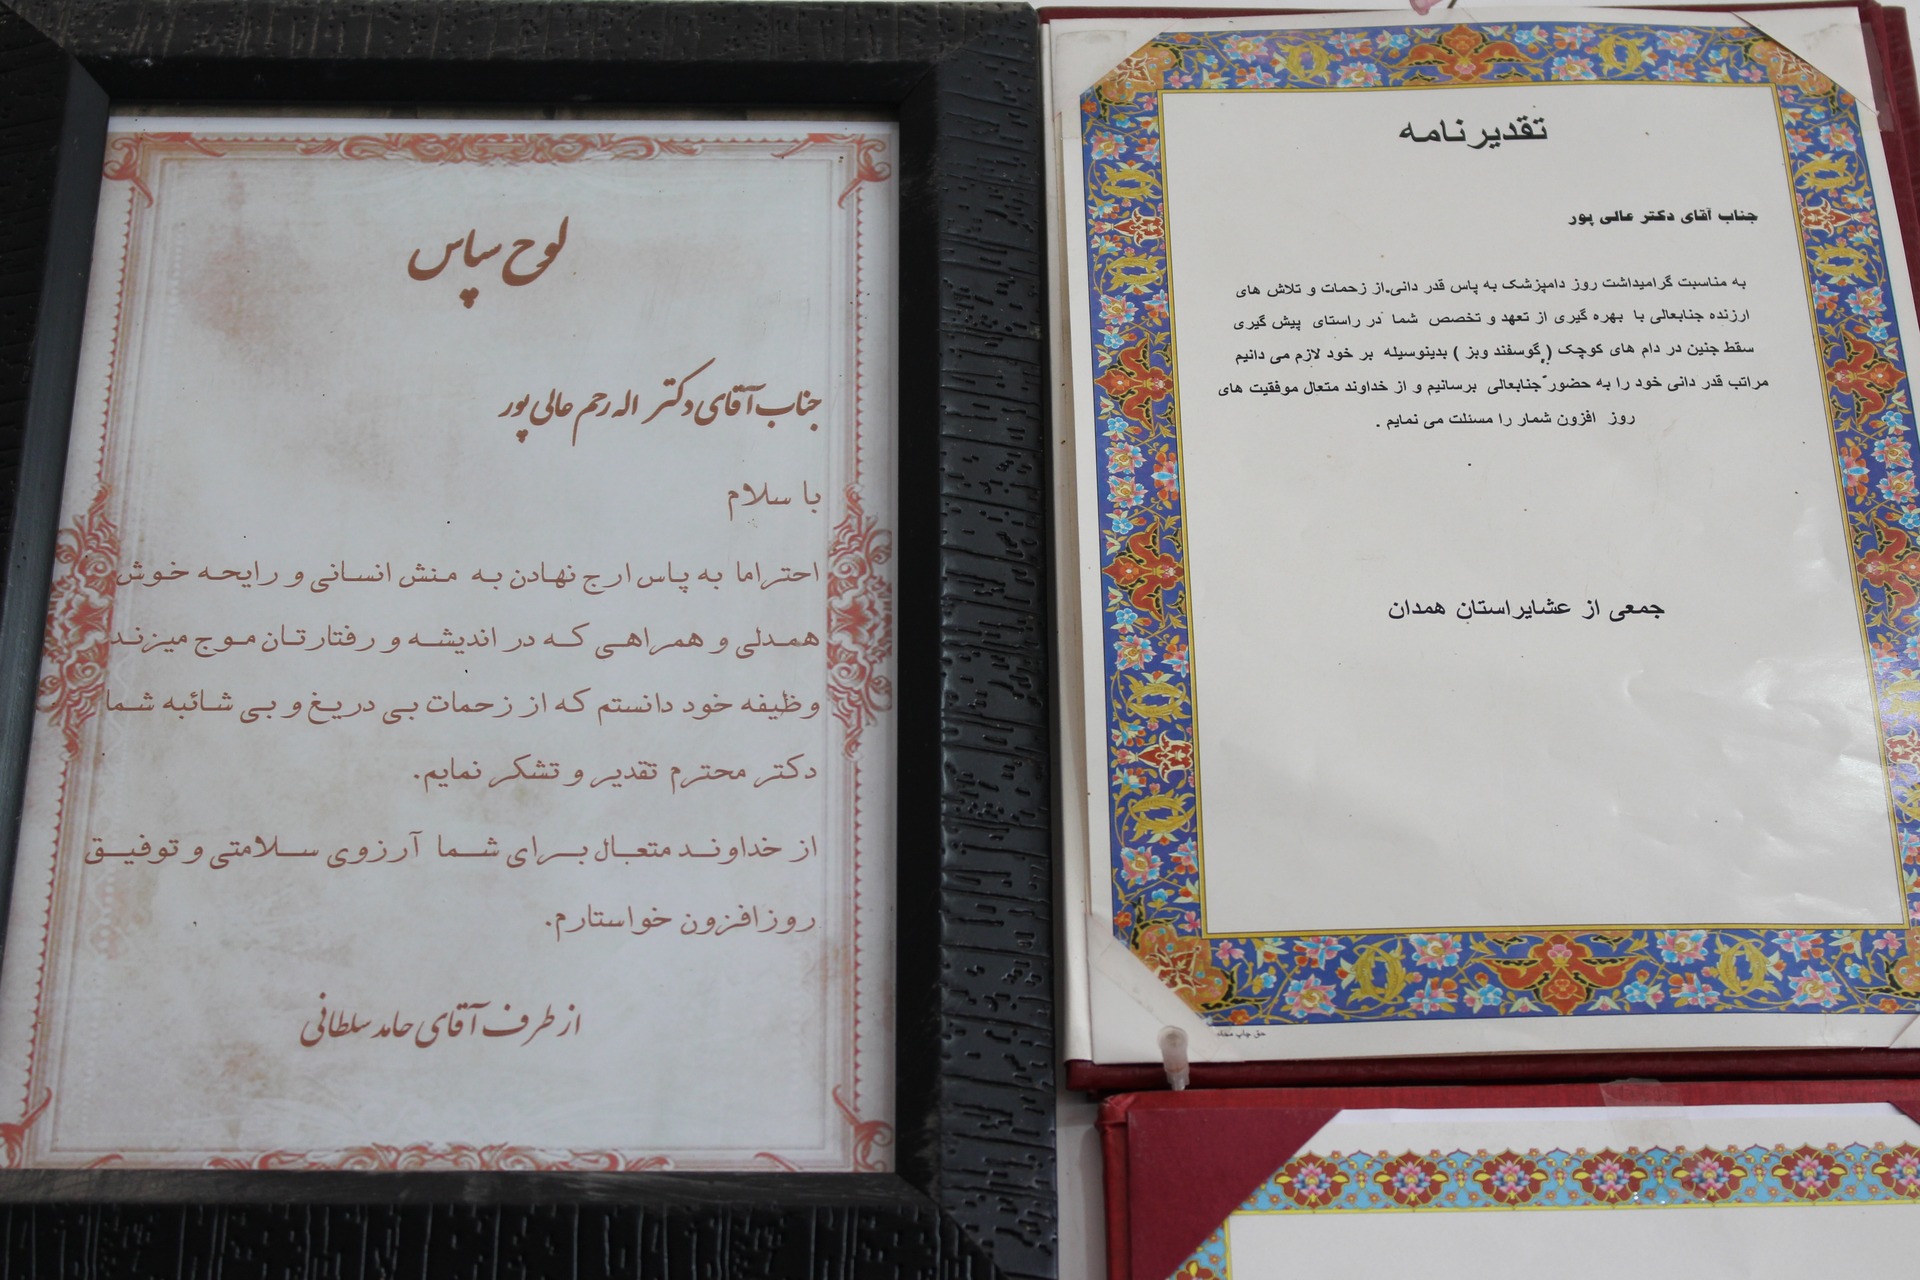 لوح سپاس
جناب آقای دکتر اله رحم عالی پور
با سلام
احتراما به پاس ارج نهادن به منش انسانی و رایحه خوش
همدلی و همراهی که در اندیشه و رفتارتان موج میزند
وظیفه خود دانستم که از زحمات بی دریغ و بی شائبه شما
دکتر محترم تقدیر و تشکر نمایم.
از خداوند متعال برای شما آرزوی سلامتی و توفیق
روزافزون خواستارم.
از طرف آقای حامد سلطانی
تقدیرنامه
جناب آقای دکتر عالی پور
به مناسبت گرامیداشت روز دامپزشک به پاس قدر دانی.از زحمات و تلاش های
ارزنده جنابعالی با بهره گیری از تعهد و تخصص شما در راستای پیش گیری
سقط جنین در دام های کوچک ( گوسفند وبز ) بدینوسیله بر خود لازم می دانیم
مراتب قدر دانی خود را به حضور جنابعالی برسانیم و از خداوند متعال موفقیت های
روز افزون شمار را مسئلت می نمایم .
جمعی از عشایراستان همدان
حق چاپ